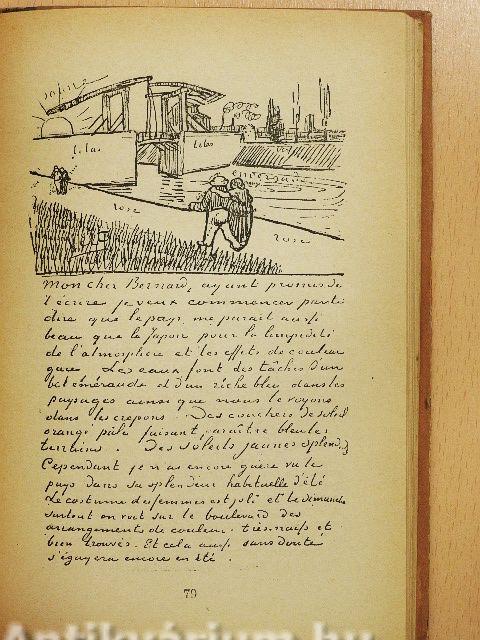 jaune
lilas
lilas
emeraude
rose
vert
rose
Mon cher Bernard, ayant promis de
t'écrire je veux commencer par te
dire que le pays me parait aussi
beau que le Japon pour la limpidité
de l'atmosphère et les effets de couleur
gaie. Les eaux font des tâches d'un
bel émeraude et d'un riche bleu dans les
paysages ainsi que nous le voyons
dans les crepons. Des couchers de soleil
orangé pâle faisant paraître bleu les
terrains. Des soleils jaunes splend.
Cependant je n'ai encore guère vu le
pays dans sa splendeur habituelle d'été
Le costume des femmes est joli et le dimanche
surtout on voit sur le boulevard des
arrangements de couleur très naïfs et
bien trouvés. Et cela aussi sans doute
s'égayera encore en été.
79
Antikvárium.hu